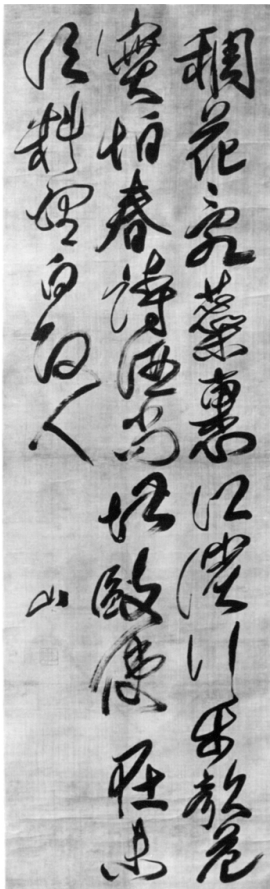 稠花亂蘂裹江濱行步欹危
實怕春詩酒尚堪敺使在未
須料理白頭人
山